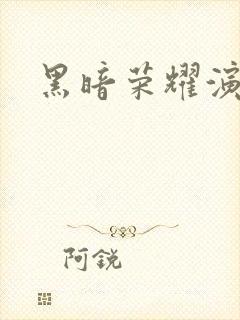 黑暗荣耀演
阿銳